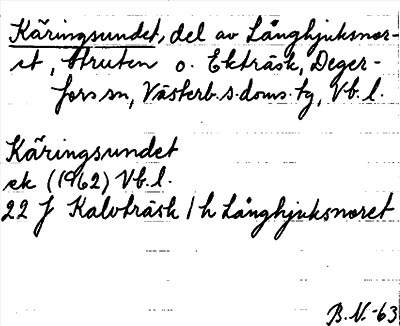 Käringsundet, del av Långhjuksnor-
et, Struten o. Ekträsk, Deger-
fors sn, Västerb. s. doms. tg, Vb. l.
Käringsundet
ek (1962) Vb. l.
22 J Kalvträsk 1 h Långhjuksnoret
B. N. -63